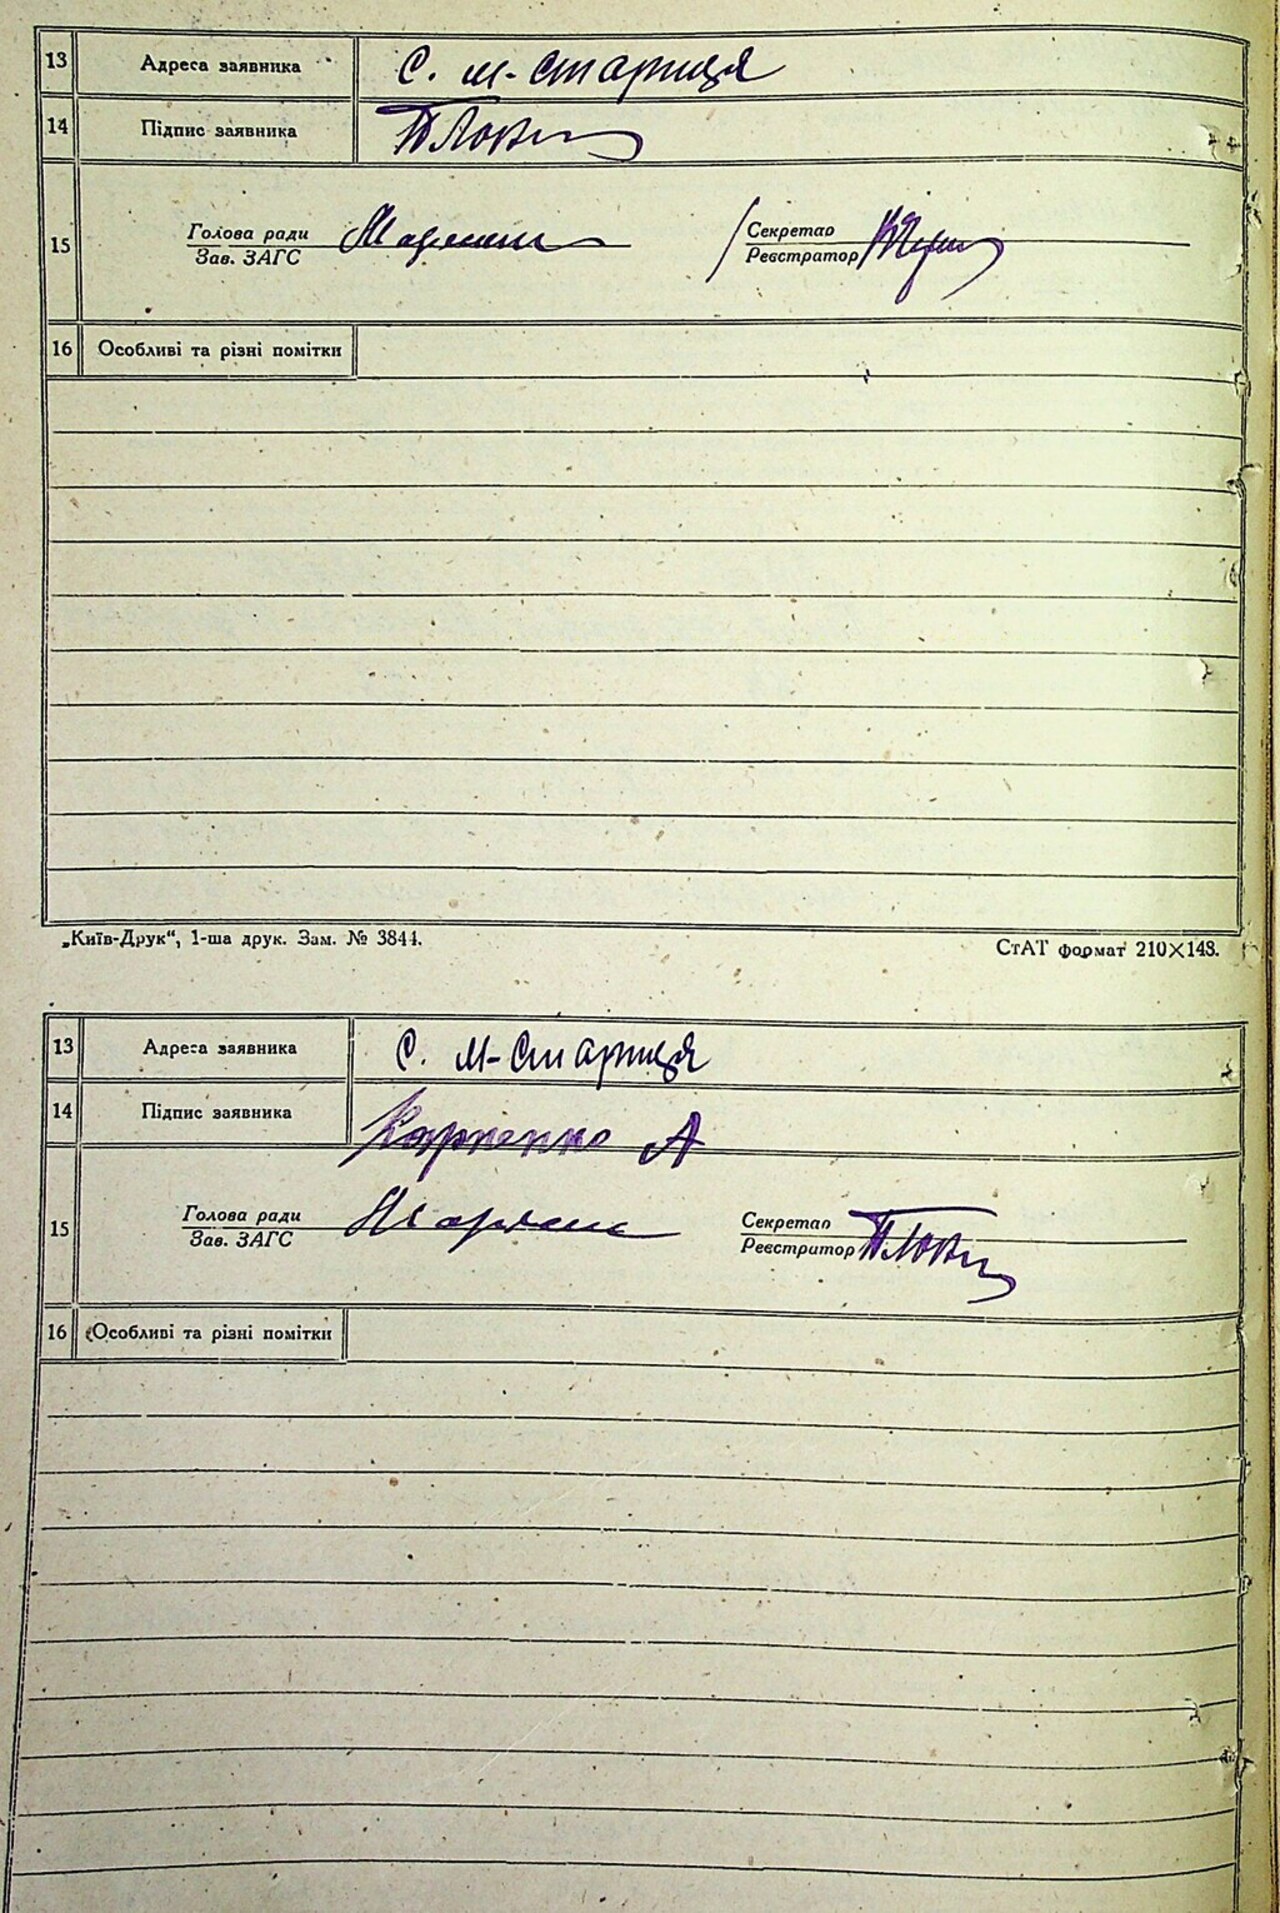 13 Адреса заявника С. М-Стариця
14 Підпис заявника
15 Голова ради Секретар
Зав. ЗАГС Реєстратор
16 Особливі та різні помітки
„Київ-Друк“, 1-ша друк. Зам. № 3844. СтАТ формат 210×148.
13 Адреса заявника С. М-Стариця
14 Підпис заявника Карпенко А
15 Голова ради Секретар
Зав. ЗАГС Реєстратор
16 Особливі та різні помітки